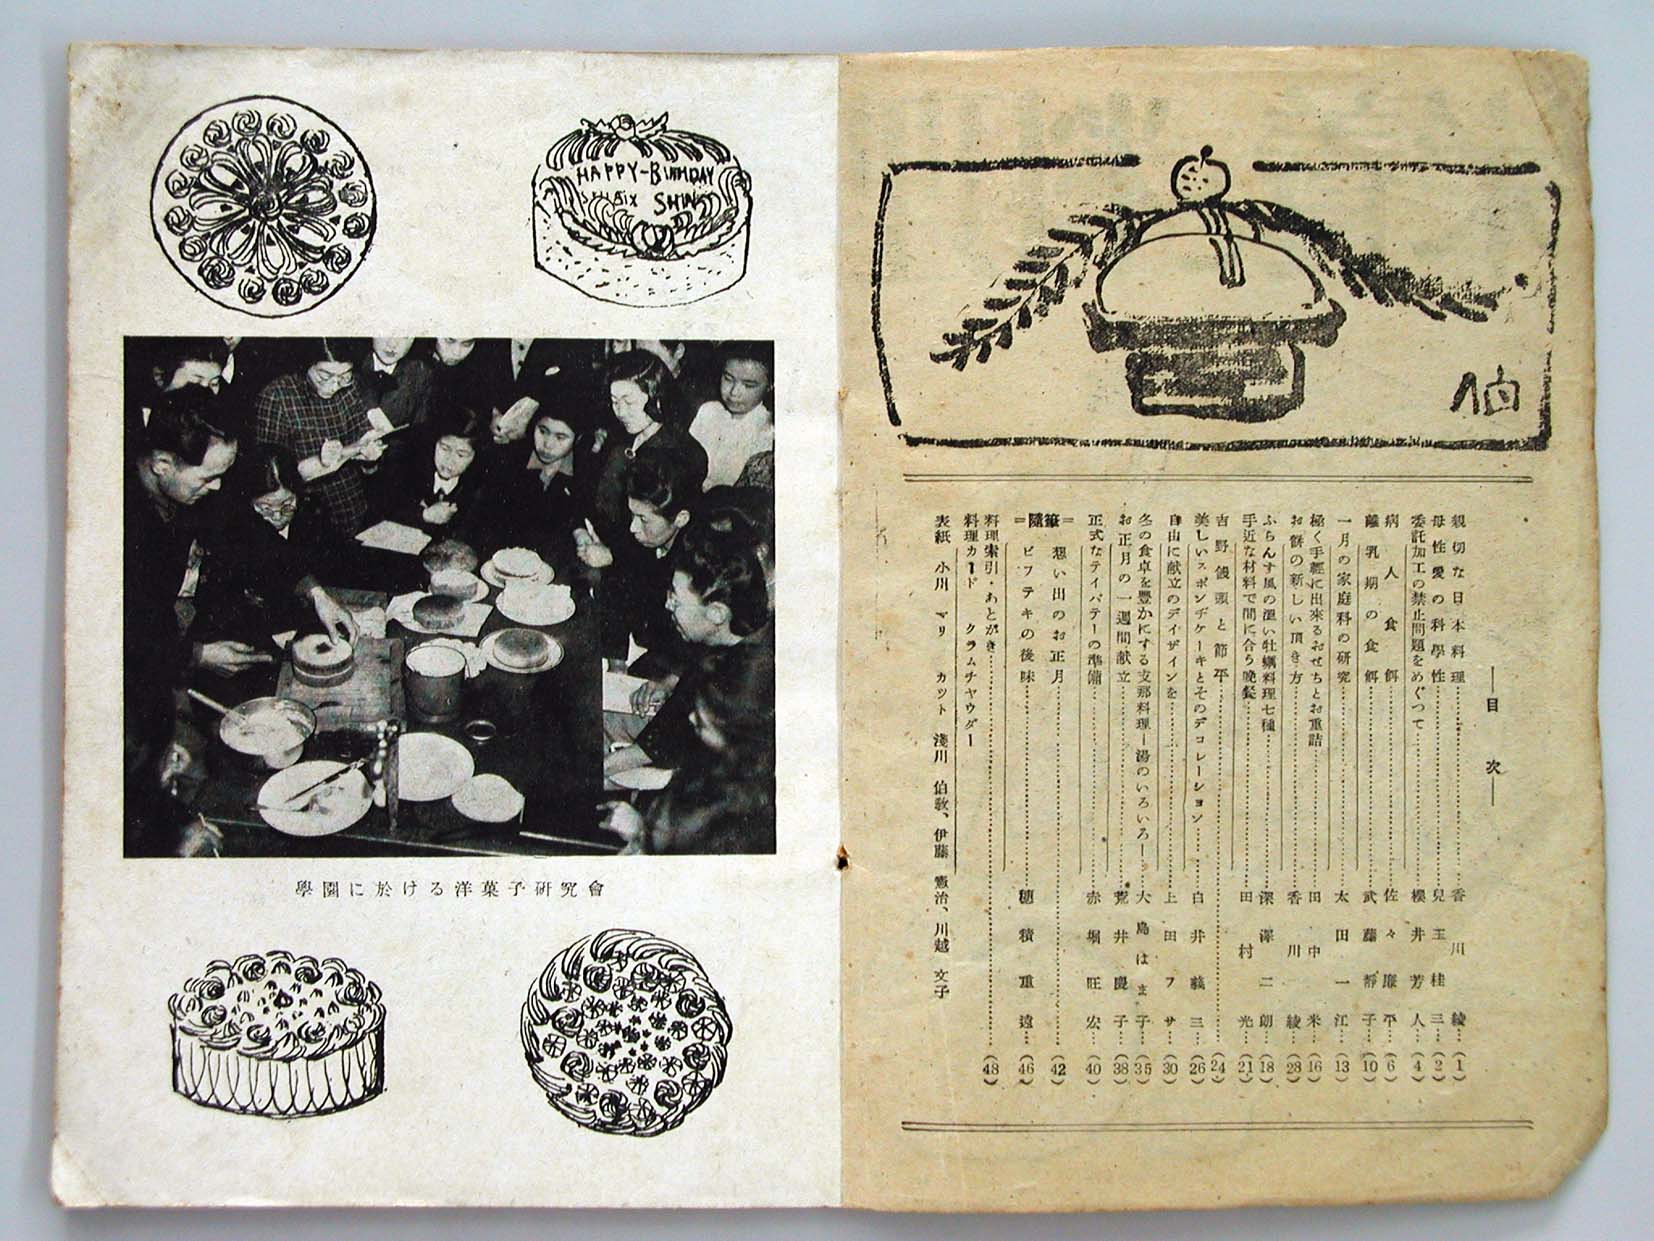 HAPPY-BIRTHDAY
SHIN
學園に於ける洋菓子研究會
伯
―目次―
親切な日本料理……香川綾…(1)
母性愛の科學性……兒玉桂三…(2)
委託加工の禁止問題をめぐつて……櫻井芳人…(4)
病人食餌……佐々廉平…(6)
離乳期の食餌……武藤靜子…(10)
一月の家庭科の研究……太田一江…(13)
極く手輕に出來るおせちとお重詰……田中米…(16)
お餅の新しい頂き方……香川綾…(28)
ふらんす風の溫い牡蠣料理七種……深澤二朗…(18)
手近な材料で間に合う晩餐……田村光…(21)
吉野饅頭と節平……(24)
美しいスポンヂケーキとそのデコレーション……白井義三…(26)
自由に献立のデイザインを……上田フサ…(30)
冬の食卓を豊かにする支那料理―湯のいろいろ―…大島はま子…(35)
お正月の一週間献立……荒井慶子…(38)
正式なテイパテーの準備……赤堀旺宏…(40)
=隨筆=
想い出のお正月……(42)
ビフテキの後味……穗積重遠…(46)
料理索引・あとがき……(48)
料理カード クラムチヤウダー
表紙 小川マリ カツト 淺川伯敎、伊藤憲治、川越文子